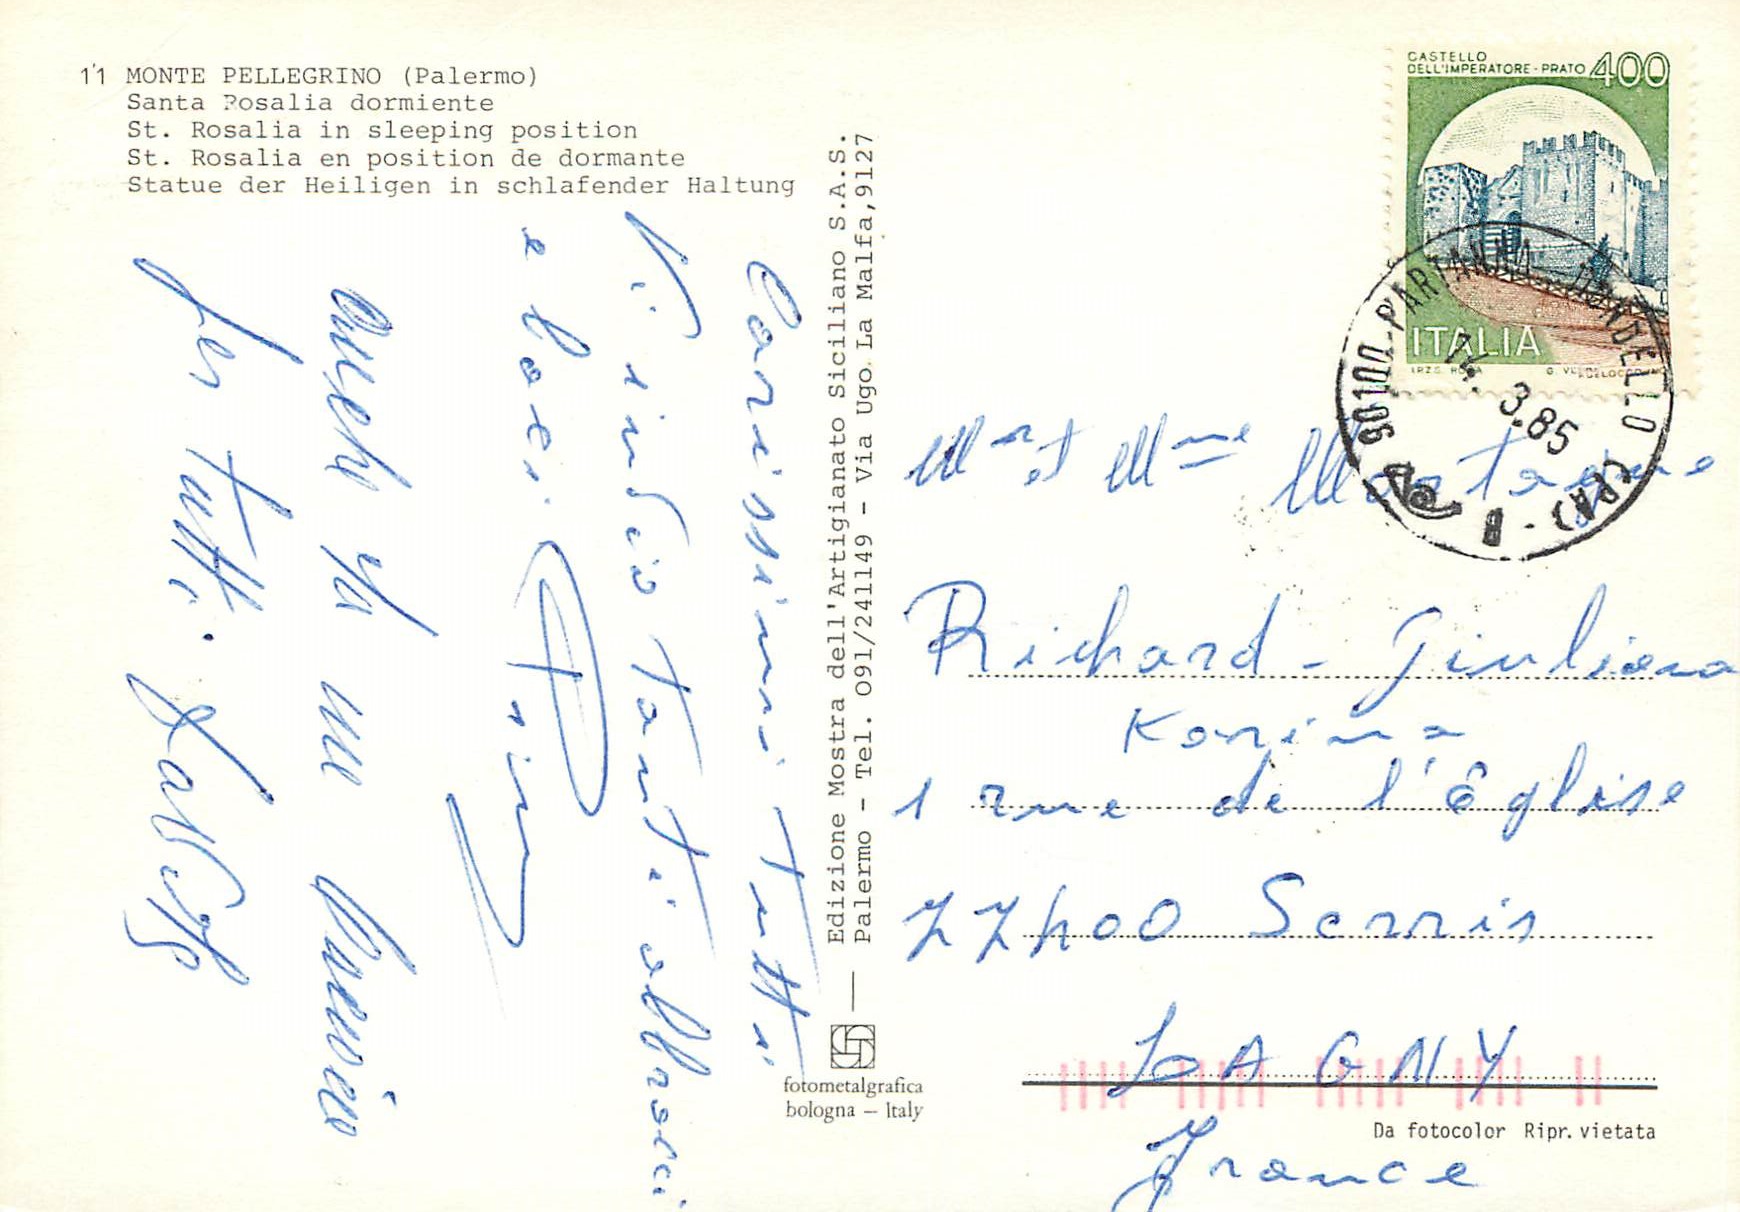 11 MONTE PELLEGRINO (Palermo)
Santa Rosalia dormiente
St. Rosalia in sleeping position
St. Rosalia en position de dormante
Statue der Heiligen in schlafender Haltung
Carissimi tutti
Vi invio tanti abbracci
e baci
Anch' io un bacio
per tutti.
Edizione Mostra dell'Artigianato Siciliano S.A.S.
Palermo – Tel. 091/241149 – Via Ugo La Malfa,9127
fotometalgrafica
bologna – Italy
CASTELLO
DELL'IMPERATORE - PRATO 400
ITALIA
I.P.Z.S. ROMA
90100 PARTANNA MONDELLO (PA)
14. 3.85
Mr et Mme
Richard - Giuliana
Karina
1 rue de l'Église
77400 Serris
LAGNY
France
Da fotocolor Ripr. vietata